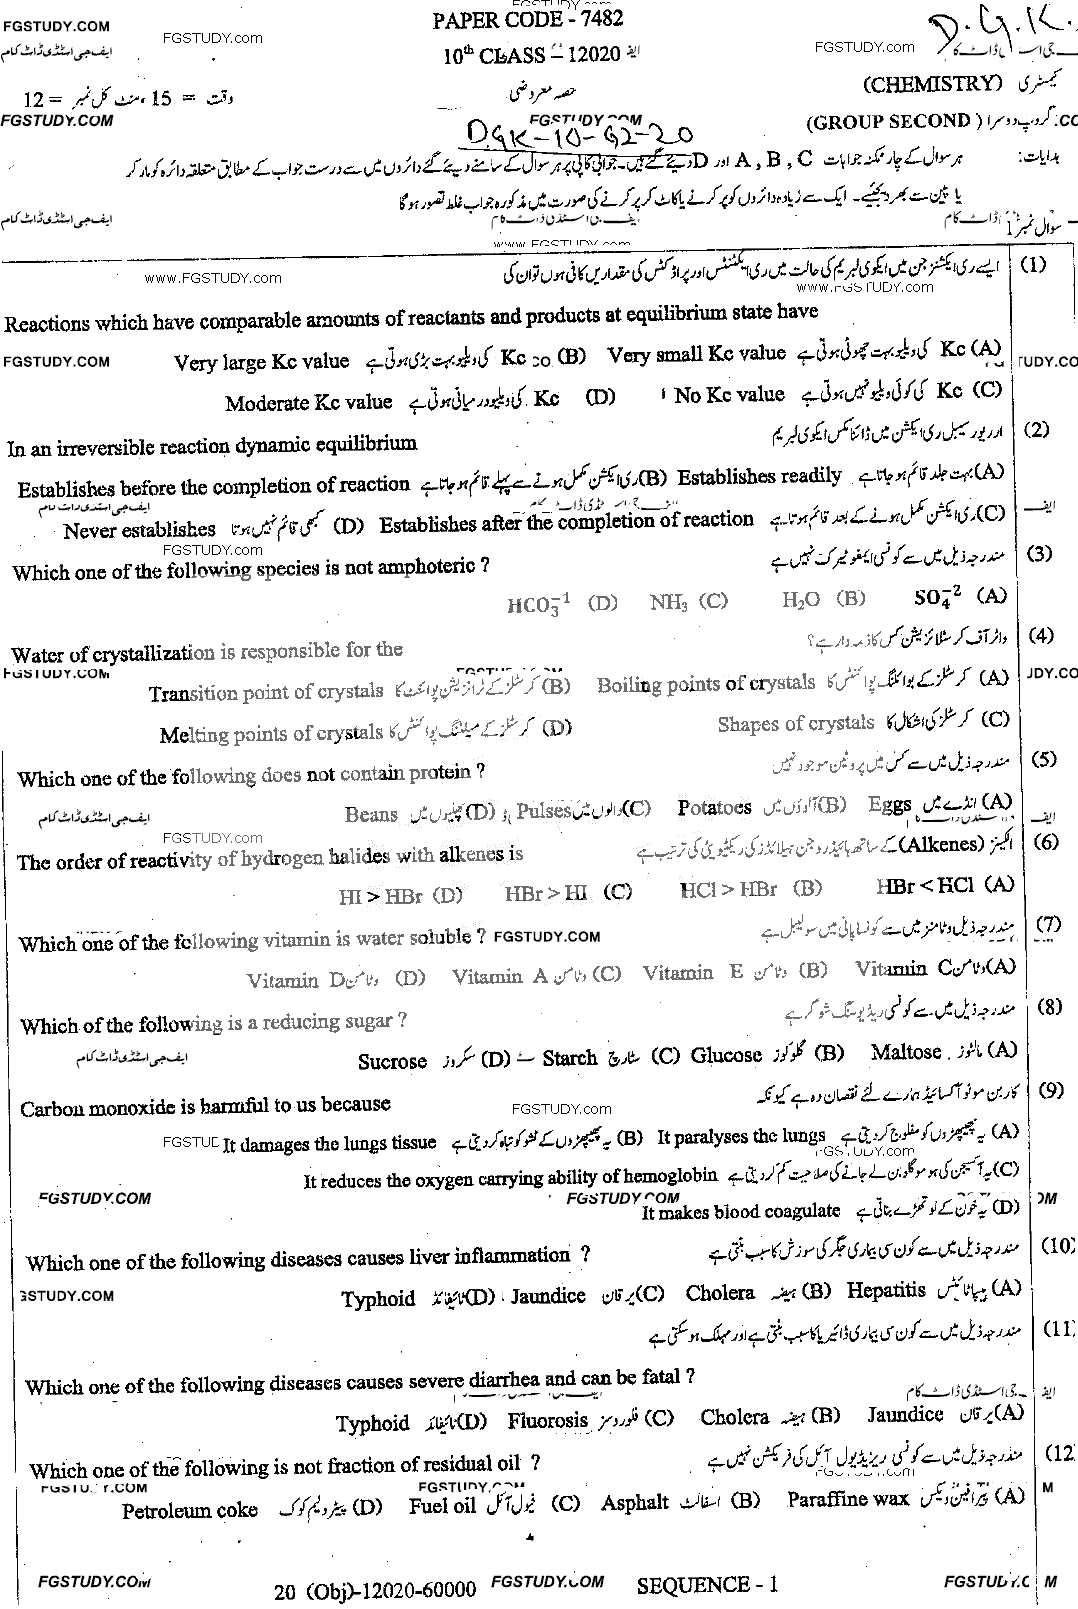 FGSTUDY.COM
ایف جی اسٹڈی ڈاٹ کام
FGSTUDY.com
PAPER CODE - 7482
10th CLASS - 12020
D.G.K.
FGSTUDY.com
کیمسٹری (CHEMISTRY)
حصہ معروضی
وقت = 15 منٹ کل نمبر = 12
FGSTUDY.COM
FGSTUDY.COM
گروپ دوسرا (GROUP SECOND)
DGK-10-G2-20
ہدایات: ہر سوال کے چار ممکنہ جوابات A , B , C اور D دیئے گئے ہیں۔ جوابی کاپی پر ہر سوال کے سامنے دیئے گئے دائروں میں سے درست جواب کے مطابق متعلقہ دائرہ کو مارکر
یا پین سے بھر دیجئیے۔ ایک سے زیادہ دائروں کو پُر کرنے یا کاٹ کر پُر کرنے کی صورت میں مذکورہ جواب غلط تصور ہوگا
ایف جی اسٹڈی ڈاٹ کام
سوال نمبر 1
www.FGSTUDY.com
(1) ایسے ری ایکشنز جن میں ایکوی لبریم کی حالت میں ری ایکٹنٹس اور پراڈکٹس کی مقداریں کافی ہوں تو ان کی
www.FGSTUDY.com
www.FGSTUDY.com
Reactions which have comparable amounts of reactants and products at equilibrium state have
FGSTUDY.COM
Very large Kc value کی ویلیو بہت بڑی ہوتی ہے Kc (B) Very small Kc value کی ویلیو بہت چھوٹی ہوتی ہے Kc (A)
Moderate Kc value کی ویلیو درمیانی ہوتی ہے Kc (D) No Kc value کی کوئی ویلیو نہیں ہوتی ہے Kc (C)
(2) ارریورسیبل ری ایکشن میں ڈائنامکس ایکوی لبریم
In an irreversible reaction dynamic equilibrium
Establishes before the completion of reaction ری ایکشن مکمل ہونے سے پہلے قائم ہو جاتا ہے (B) Establishes readily بہت جلد قائم ہو جاتا ہے (A)
ایف جی اسٹڈی ڈاٹ کام
Never establishes کبھی قائم نہیں ہوتا (D) Establishes after the completion of reaction ری ایکشن مکمل ہونے کے بعد قائم ہوتا ہے (C)
FGSTUDY.com
(3) مندرجہ ذیل میں سے کونسی ایمفوٹیرک نہیں ہے
Which one of the following species is not amphoteric ?
HCO₃⁻¹ (D) NH₃ (C) H₂O (B) SO₄⁻² (A)
(4) واٹر آف کرسٹلائزیشن کس کا ذمہ دار ہے؟
Water of crystallization is responsible for the
FGSTUDY.COM
Transition point of crystals کرسٹلز کے ٹرانزیشن پوائنٹ کا (B) Boiling points of crystals کرسٹلز کے بوائلنگ پوائنٹس کا (A)
Melting points of crystals کرسٹلز کے میلٹنگ پوائنٹس کا (D) Shapes of crystals کرسٹلز کی اشکال کا (C)
(5) مندرجہ ذیل میں سے کس میں پروٹین موجود نہیں
Which one of the following does not contain protein ?
ایف جی اسٹڈی ڈاٹ کام
Beans پھلیوں میں (D) Pulses دالوں میں (C) Potatoes آلوؤں میں (B) Eggs انڈے میں (A)
FGSTUDY.com
(6) الکینز (Alkenes) کے ساتھ ہائیڈروجن ہیلائڈز کی ریکٹیویٹی کی ترتیب ہے
The order of reactivity of hydrogen halides with alkenes is
HI > HBr (D) HBr > HI (C) HCl > HBr (B) HBr < HCl (A)
(7) مندرجہ ذیل وٹامنز میں سے کونسا پانی میں سولیبل ہے
Which one of the following vitamin is water soluble ? FGSTUDY.COM
Vitamin D وٹامن (D) Vitamin A وٹامن (C) Vitamin E وٹامن (B) Vitamin C وٹامن (A)
(8) مندرجہ ذیل میں سے کونسی ریڈیوسنگ شوگر ہے
Which of the following is a reducing sugar ?
ایف جی اسٹڈی ڈاٹ کام
Sucrose سکروز (D) Starch سٹارچ (C) Glucose گلوکوز (B) Maltose مالٹوز (A)
(9) کاربن مونو آکسائیڈ ہمارے لئے نقصان دہ ہے کیونکہ
Carbon monoxide is harmful to us because
FGSTUDY.com
It damages the lungs tissue یہ پھیپھڑوں کے ٹشو کو تباہ کر دیتی ہے (B) It paralyses the lungs یہ پھیپھڑوں کو مفلوج کر دیتی ہے (A)
FGSTUDY.com
It reduces the oxygen carrying ability of hemoglobin یہ آکسیجن کی ہوموگلوبن لے جانے کی صلاحیت کم کر دیتی ہے (C)
FGSTUDY.COM
FGSTUDY.COM
It makes blood coagulate یہ خون کے لوتھڑے بناتی ہے (D)
(10) مندرجہ ذیل میں سے کون سی بیماری جگر کی سوزش کا سبب بنتی ہے
Which one of the following diseases causes liver inflammation ?
GSTUDY.COM
Typhoid ٹائیفائڈ (D) Jaundice یرقان (C) Cholera ہیضہ (B) Hepatitis ہیپاٹائیٹس (A)
(11) مندرجہ ذیل میں سے کون سی بیماری ڈائیریا کا سبب بنتی ہے اور مہلک ہو سکتی ہے
Which one of the following diseases causes severe diarrhea and can be fatal ?
Typhoid ٹائیفائڈ (D) Fluorosis فلوروسز (C) Cholera ہیضہ (B) Jaundice یرقان (A)
(12) مندرجہ ذیل میں سے کونسی ریزیڈیول آئل کی فریکشن نہیں ہے
Which one of the following is not fraction of residual oil ?
FGSTUDY.COM
Petroleum coke پیٹرولیم کوک (D) Fuel oil فیول آئل (C) Asphalt اسفالٹ (B) Paraffine wax پیرافین ویکس (A)
FGSTUDY.COM
20 (Obj)-12020-60000
FGSTUDY.COM
SEQUENCE - 1
FGSTUDY.COM